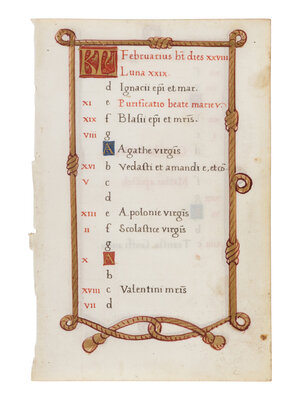 KL Februarius ht dies xxviii
Luna xxix.
d Ignacii epi et mar.
xi e Purificatio beate marie v.
xix f Blasii epi et mris.
viii g
A Agathe virgis
xvi b Vedasti et amandi e, etco
v c
d
xiii e Apolonie virgis
ii f Scolastice virgis
g
x A
b
xviii c Valentini mris
vii d